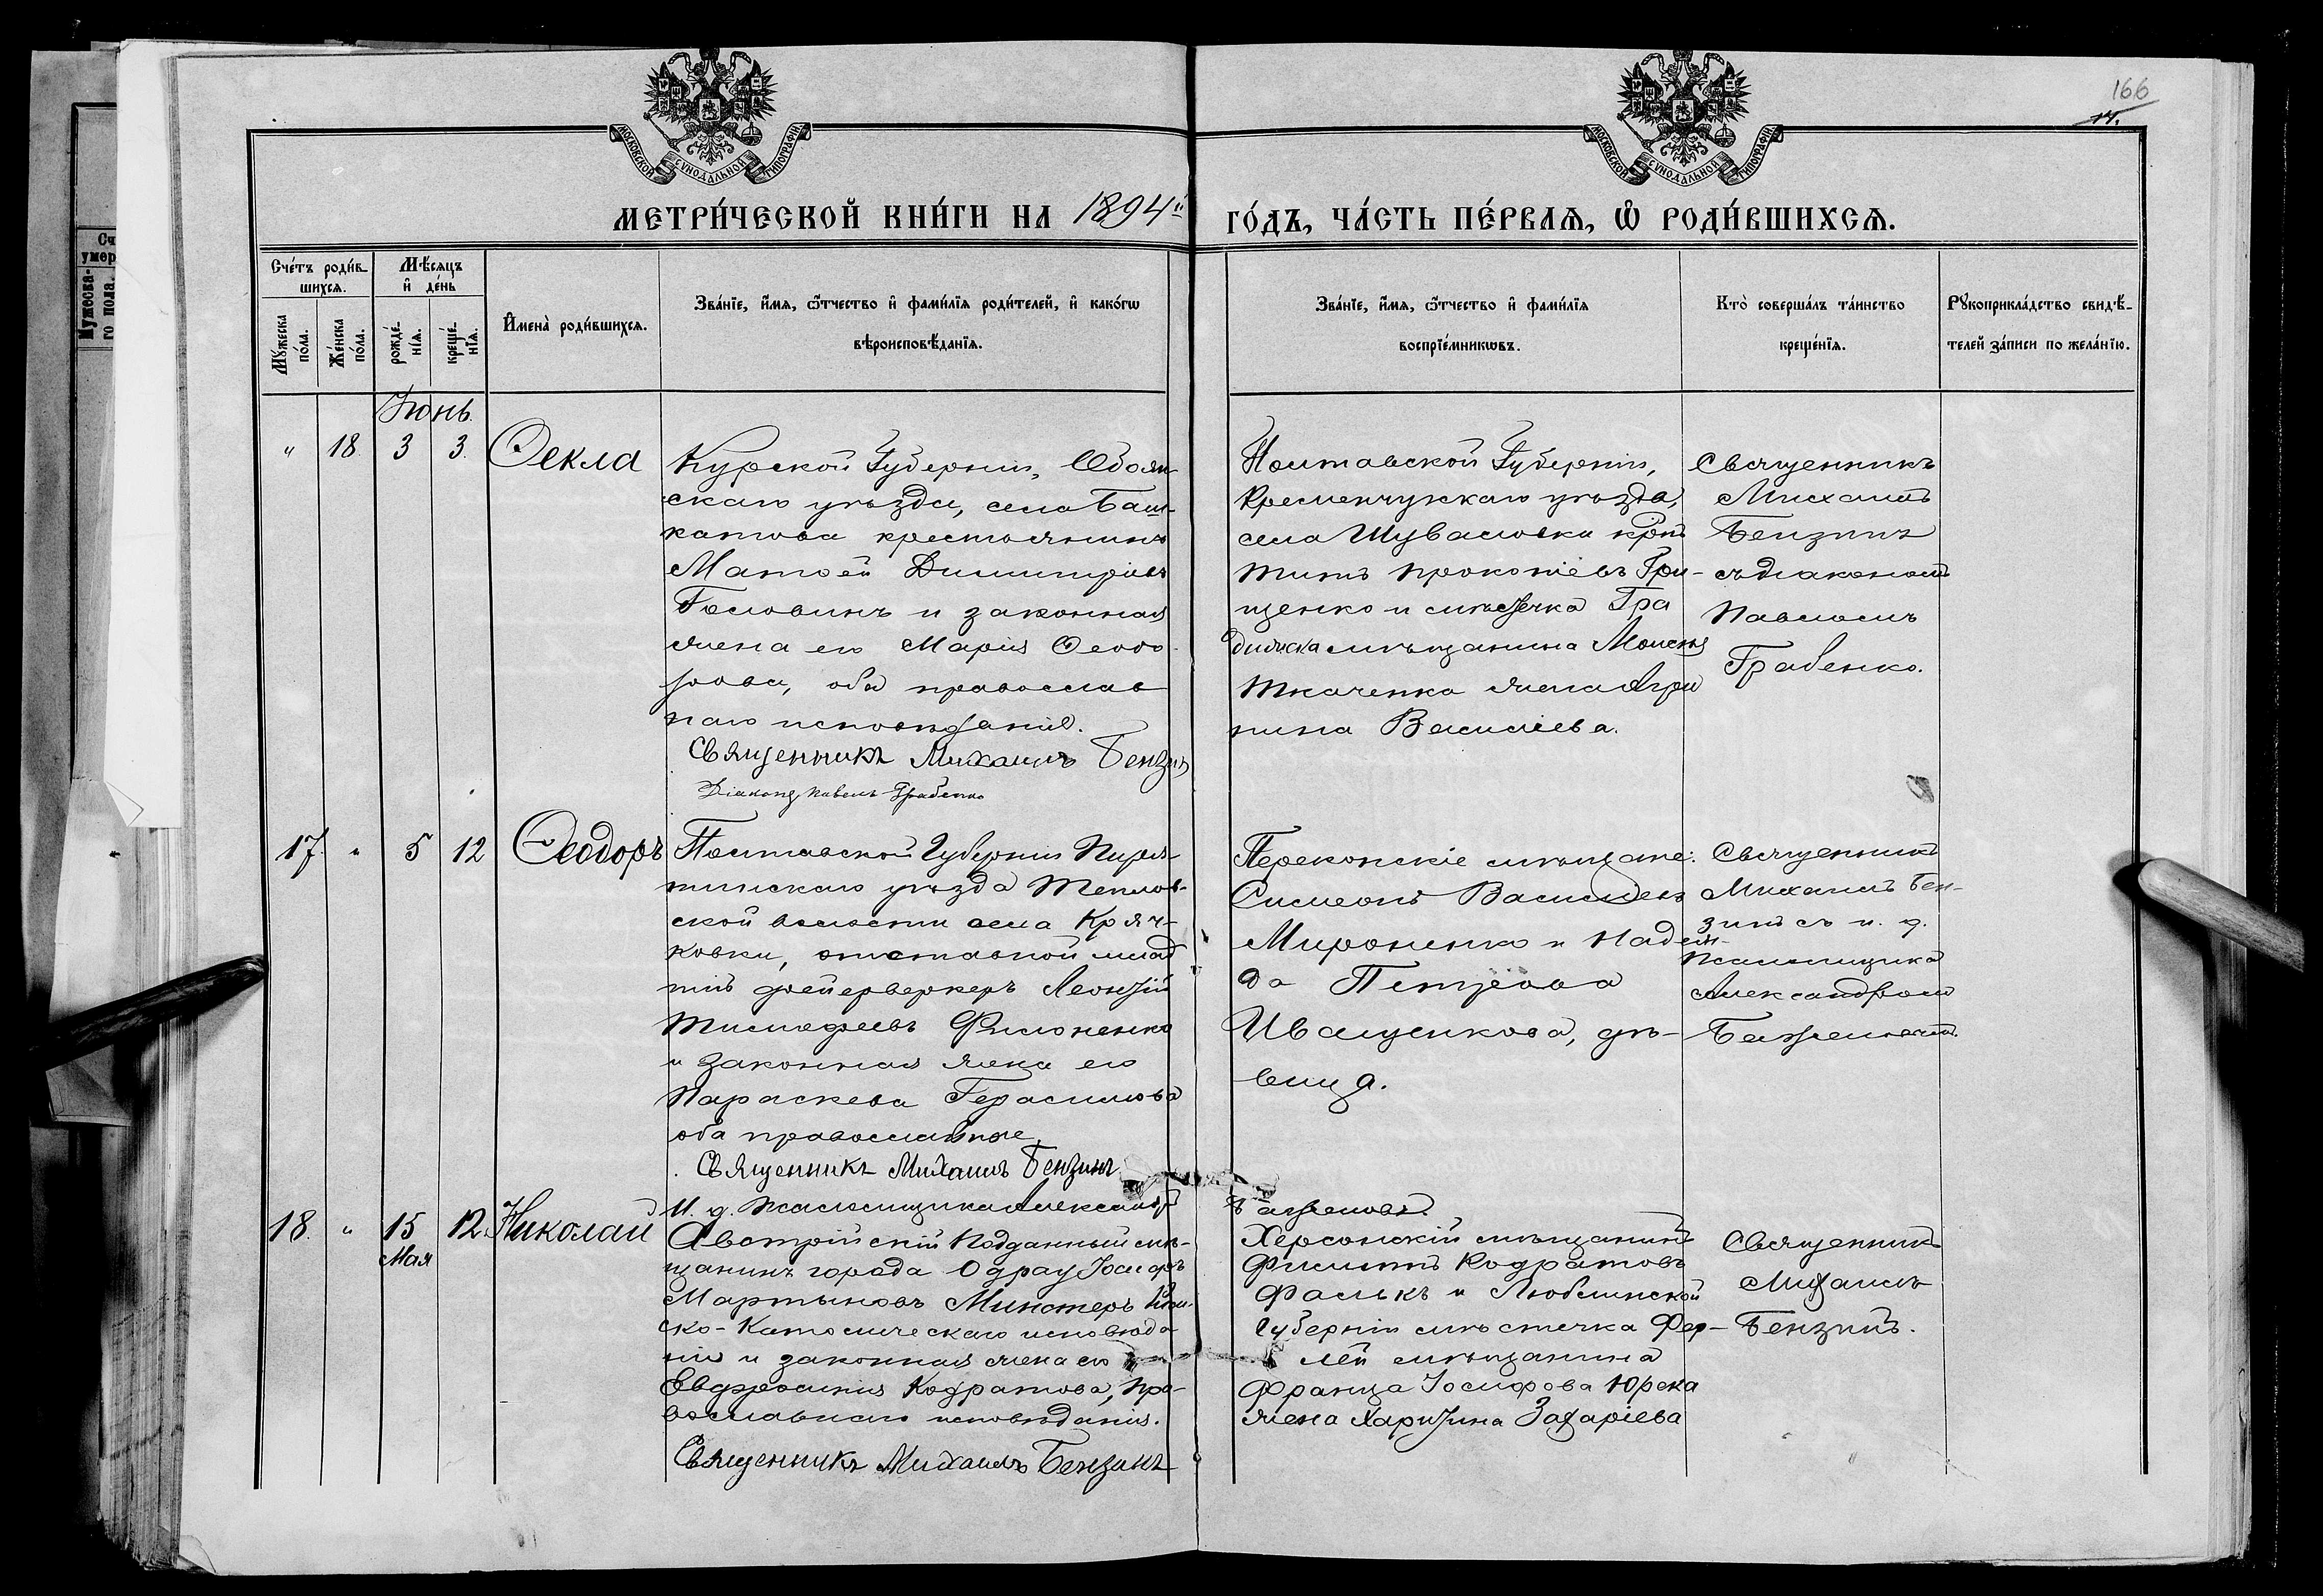 166
14.
МОСКОВСКОЙ СУНОДАЛЬНОЙ ТИПОГРАФІИ
МОСКОВСКОЙ СУНОДАЛЬНОЙ ТИПОГРАФІИ
МЕТРИ́ЧЕСКОЙ КНИ́ГИ НА 1894й ГО́ДЪ, ЧА́СТЬ ПЕ́РВАѦ, Ѡ РОДИ́ВШИХСѦ.
Сч
умер
Мужеска-
го пола.
Сче́тъ роди́в-
шихсѧ.
Мꙋ́жеска
по́ла.
Же́нска
по́ла.
Мѣ́сѧцъ
и҆ де́нь
рожде́-
нїѧ.
креще́-
нїѧ.
И҆мена̀ роди́вшихсѧ.
Зва́нїе, и҆́мѧ, ѻ҆́тчество и҆ фами́лїѧ роди́телей, и҆ како́гѡ
вѣроисповѣ́данїѧ.
Зва́нїе, и҆́мѧ, ѻ҆́тчество и҆ фами́лїѧ
воспрїе́мникѡвъ.
Кто̀ соверша́лъ та́инство
креще́нїѧ.
Рꙋкоприкла́дство свидѣ́-
телей за́писи по жела́нїю.
Іюнь.
" 18 3 3. Ѳекла
Курской Губерніи, Обоян-
скаго уѣзда, села Баш-
катова крестьянинъ
Матѳей Димитріевъ
Головинъ и законная
жена его Марія Ѳеодо-
рова, оба православ
наго исповѣданія.
Священникъ Михаилъ Бензинъ
Діаконъ Павелъ Грабенко
Полтавской Губерніи,
Кременчугскаго уѣзда,
села
Титъ Прокопіевъ Гри-
щенко и мѣстечка Гра
дижска мѣщанина Моисея
Ткаченка жена Агри
пина Василіева.
Священникъ
Михаилъ
Бензинъ
съ діакономъ
Павломъ
Грабенко.
17. " 5 12 Ѳеодоръ
Полтавской Губерніи Пиря-
тинскаго уѣзда Теплов-
ской волости села Кряч-
ковки, отставной млад
шій фейерверкеръ Леонтій
Тимофеевъ Филоненко
и законная жена его
Параскева Герасимова
оба православные.
Священникъ Михаилъ Бензинъ
И. д. псаломщика Александръ Баженовъ.
Перекопскіе мѣщане:
Симеонъ Василіевъ
Мироненко и Надеж-
да Петрова
Иващенкова, дѣ-
вица.
Священникъ
Михаилъ Бен-
зинъ съ и. д.
псаломщика
Александромъ
Баженовымъ.
18. " 15 12. Николай
Мая
Австрійскій Подданный мѣ-
щанинъ города Одрау Іосифъ
Мартыновъ Минстеръ Рим-
ско-Католическаго исповѣда
нія и законная жена его
Евфросинія Кодратова, пра-
вославнаго исповѣданія.
Священникъ Михаилъ Бензинъ
Херсонскій мѣщанинъ
Филиппъ Кодратовъ
Фалькъ и Люблинской
Губерніи мѣстечка Фер-
лей мѣщанина
Франца Іосифова Юрека
жена Харитина Захаріева
Священникъ
Михаилъ
Бензинъ.